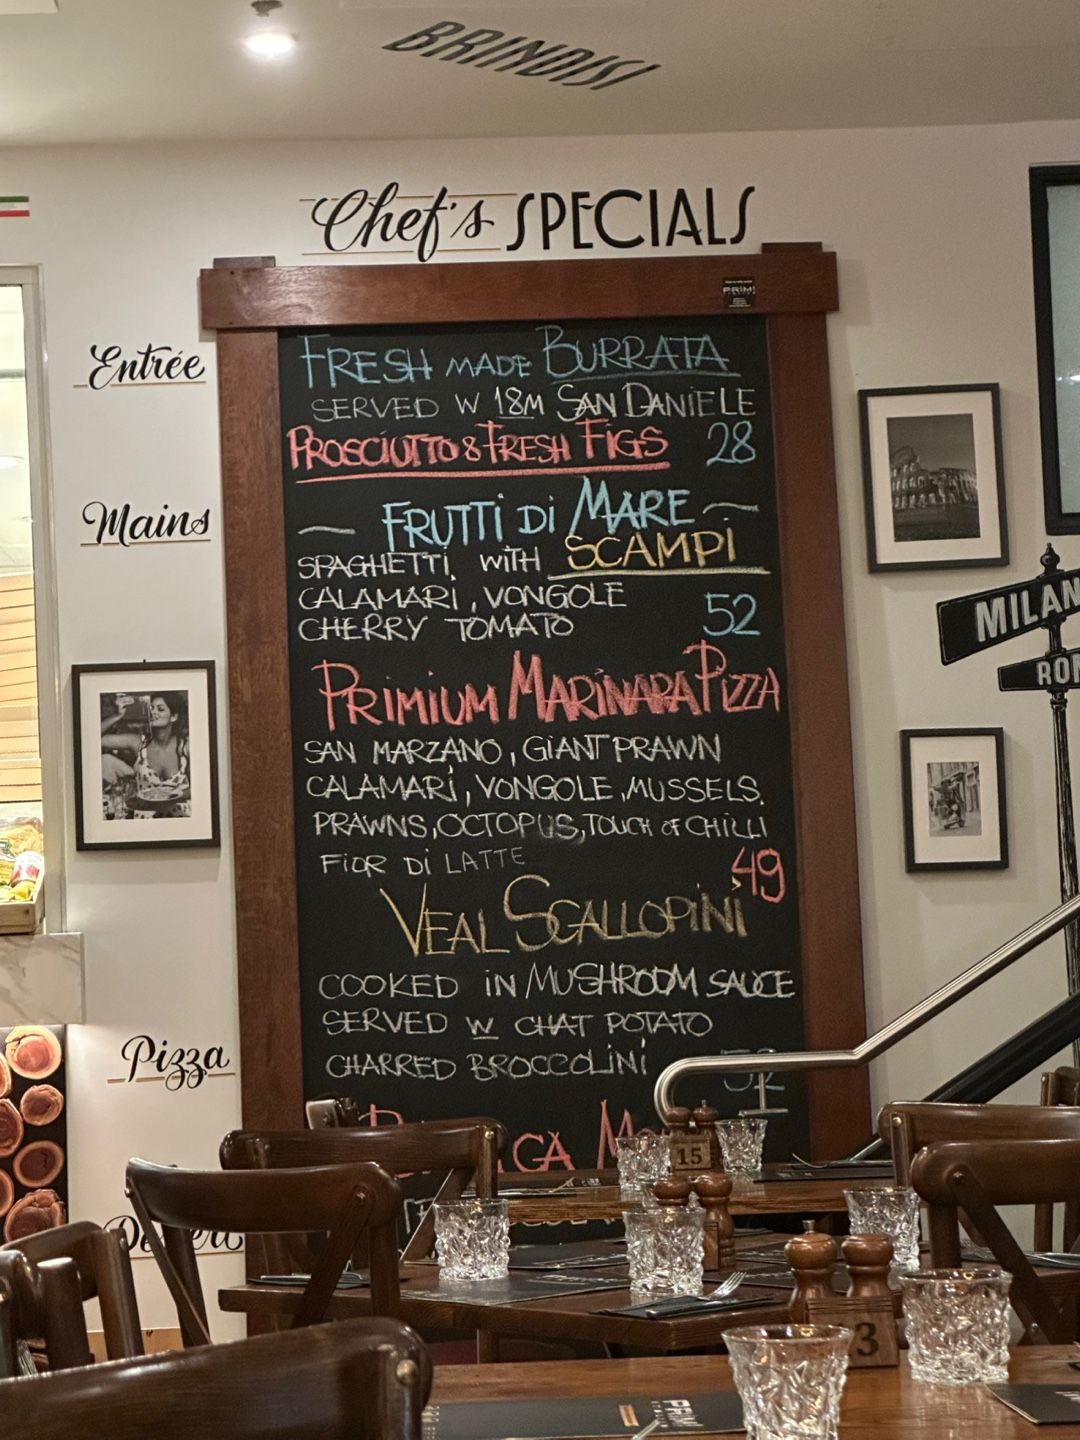 BRINDISI
Chef's SPECIALS
PRIMI
Entrée
FRESH MADE BURRATA
SERVED W 18M SAN DANIELE
PROSCIUTTO & FRESH FIGS 28
Mains
~ FRUTTI Di MARE ~
SPAGHETTI WITH SCAMPI
CALAMARI, VONGOLE
CHERRY TOMATO 52
MILAN
ROM
PRIMIUM MARINARA PIZZA
SAN MARZANO, GIANT PRAWN
CALAMARI, VONGOLE, MUSSELS.
PRAWNS, OCTOPUS, TOUCH OF CHILLI
FIOR Di LATTE 49
VEAL SCALLOPINI
COOKED IN MUSHROOM SAUCE
SERVED W CHAT POTATO
CHARRED BROCCOLINI
Pizza
15
3
PRIMI